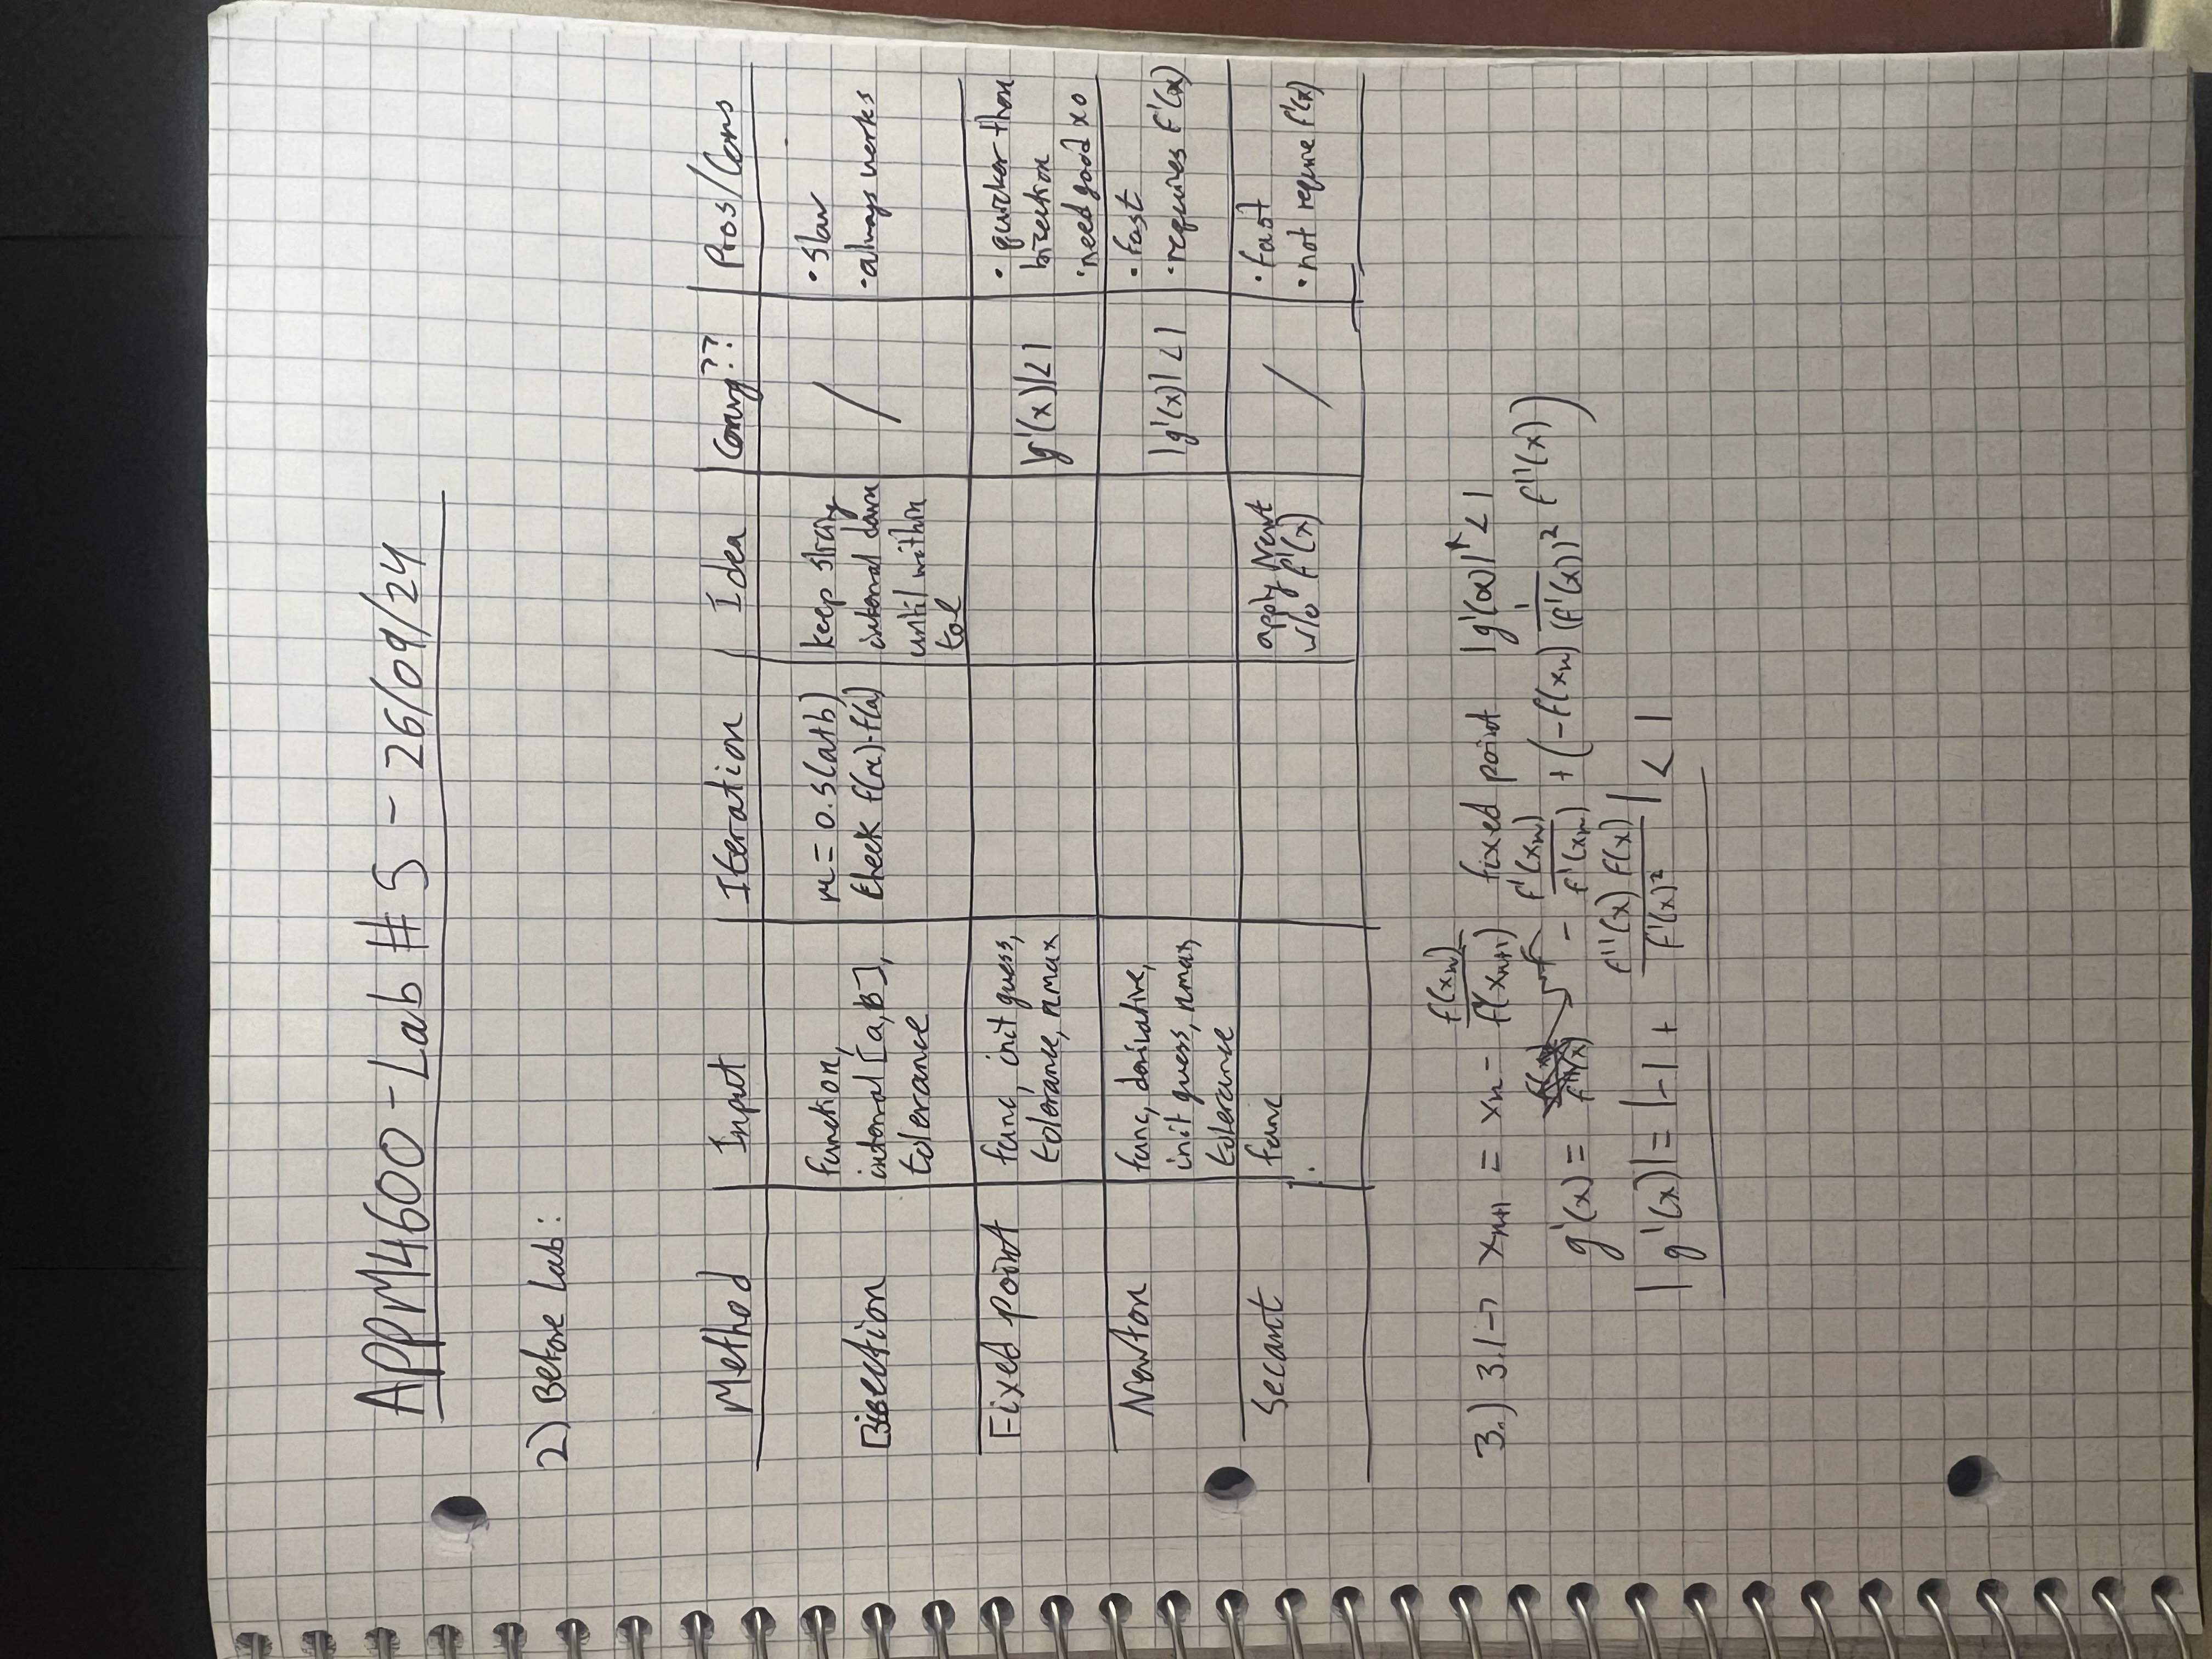 APPM4600 - Lab # 5 - 26/09/24
2) Before Lab:
Method | Input | Iteration | Idea | Converg?? | Pros/Cons
Bisection | function, interval [a,b], tolerance | m = 0.5(a+b) Check f(m)·f(a) | keep slicing interval down until within tol | / | • slow • always works
Fixed point | func, init guess, tolerance, nmax | | | |g'(x)|<1 | • quicker than bisection • need good x0
Newton | func, derivative, init guess, nmax, tolerance | | | |g'(x)|<1 | • fast • requires f'(x)
Secant | func | | apply Newt w/o f'(x) | / | • fast • not require f'(x)
3.) 3.1 → x_{n+1} = x_n - f(x_n)/f'(x_{n+1}) fixed point |g'(α)| < 1
g'(x) = - f'(x_n)/f'(x_n) + (-f(x_n) 1/(f'(x))² f''(x))
|g'(x)| = |-1 + f''(x) f(x)/f'(x)²| < 1